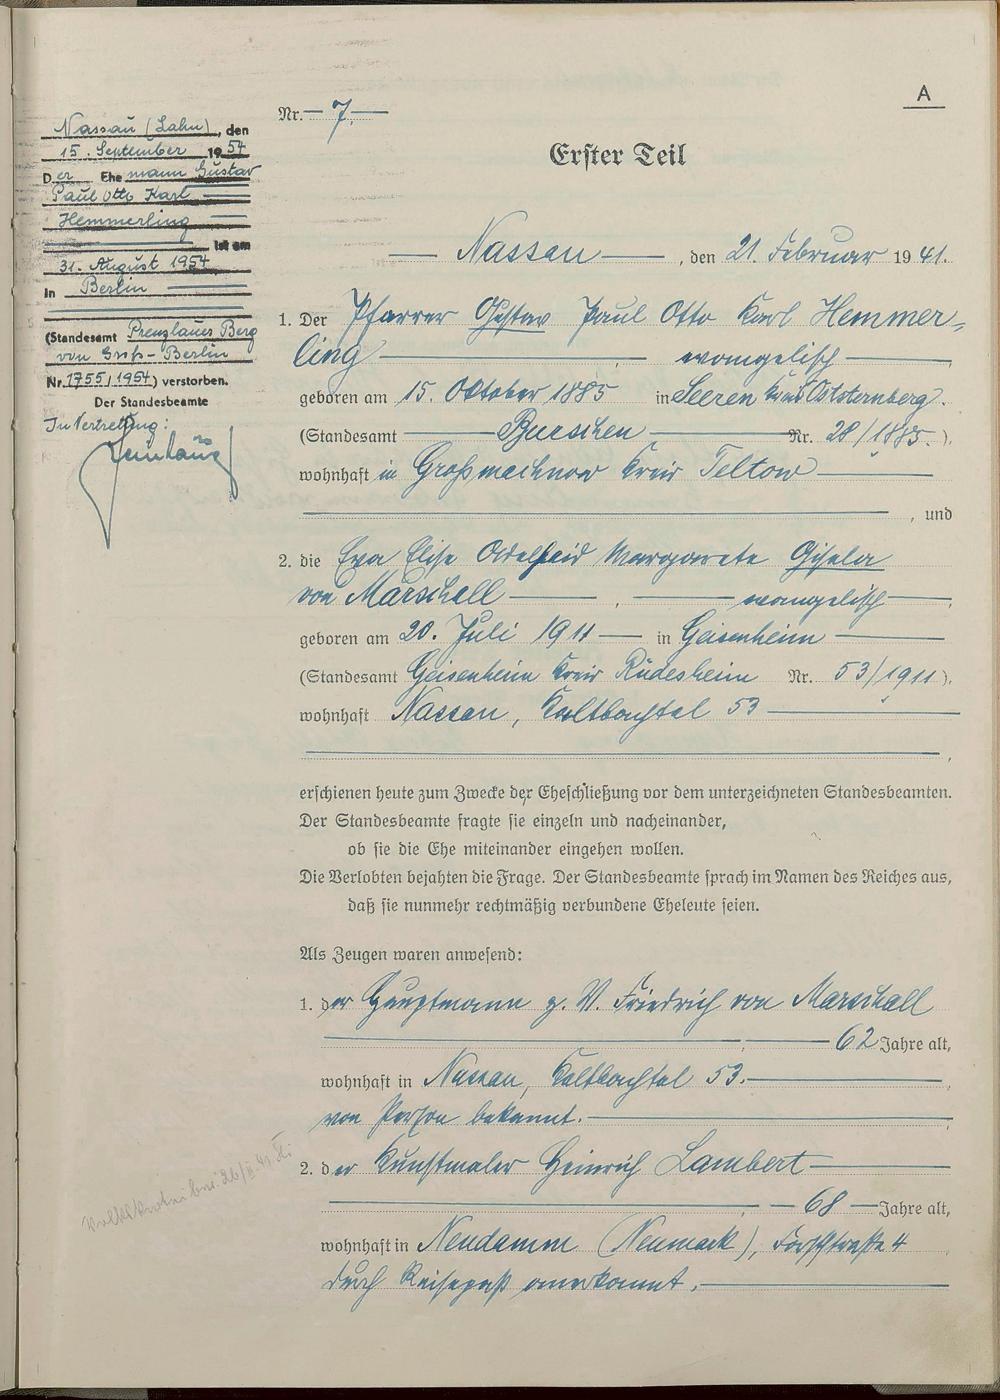 A
Nr. 7.
Erster Teil
Nassau (Lahn), den
15. September 1954
Der Ehemann Gustav
Paul Otto Karl
Hemmerling
ist am
31. August 1954
in Berlin
(Standesamt Prenzlauer Berg
von Groß-Berlin
Nr. 1755/1954) verstorben.
Der Standesbeamte
In Vertretung:
Nassau, den 21. Februar 1941.
1. Der Pfarrer Gustav Paul Otto Karl Hemmer-
ling, evangelisch,
geboren am 15. Oktober 1885 in Seeren Kreis Oststernberg.
(Standesamt Burschen Nr. 28/1885.),
wohnhaft in Großmachnow Kreis Teltow
, und
2. die Eva Elise Adelheid Margarete Gisela
von Marschall, evangelisch,
geboren am 20. Juli 1911 in Geisenheim
(Standesamt Geisenheim Kreis Rüdesheim Nr. 53/1911),
wohnhaft Nassau, Kaltbachtal 53
,
erschienen heute zum Zwecke der Eheschließung vor dem unterzeichneten Standesbeamten.
Der Standesbeamte fragte sie einzeln und nacheinander,
ob sie die Ehe miteinander eingehen wollen.
Die Verlobten bejahten die Frage. Der Standesbeamte sprach im Namen des Reiches aus,
daß sie nunmehr rechtmäßig verbundene Eheleute seien.
Als Zeugen waren anwesend:
1. der Hauptmann z. V. Friedrich von Marschall
, 62 Jahre alt,
wohnhaft in Nassau, Kaltbachtal 53.
von Person bekannt.
2. der Kunstmaler Heinrich Lambert
, 68 Jahre alt,
wohnhaft in Neudamm (Neumark), Forststraße 4
durch Reisepaß anerkannt.